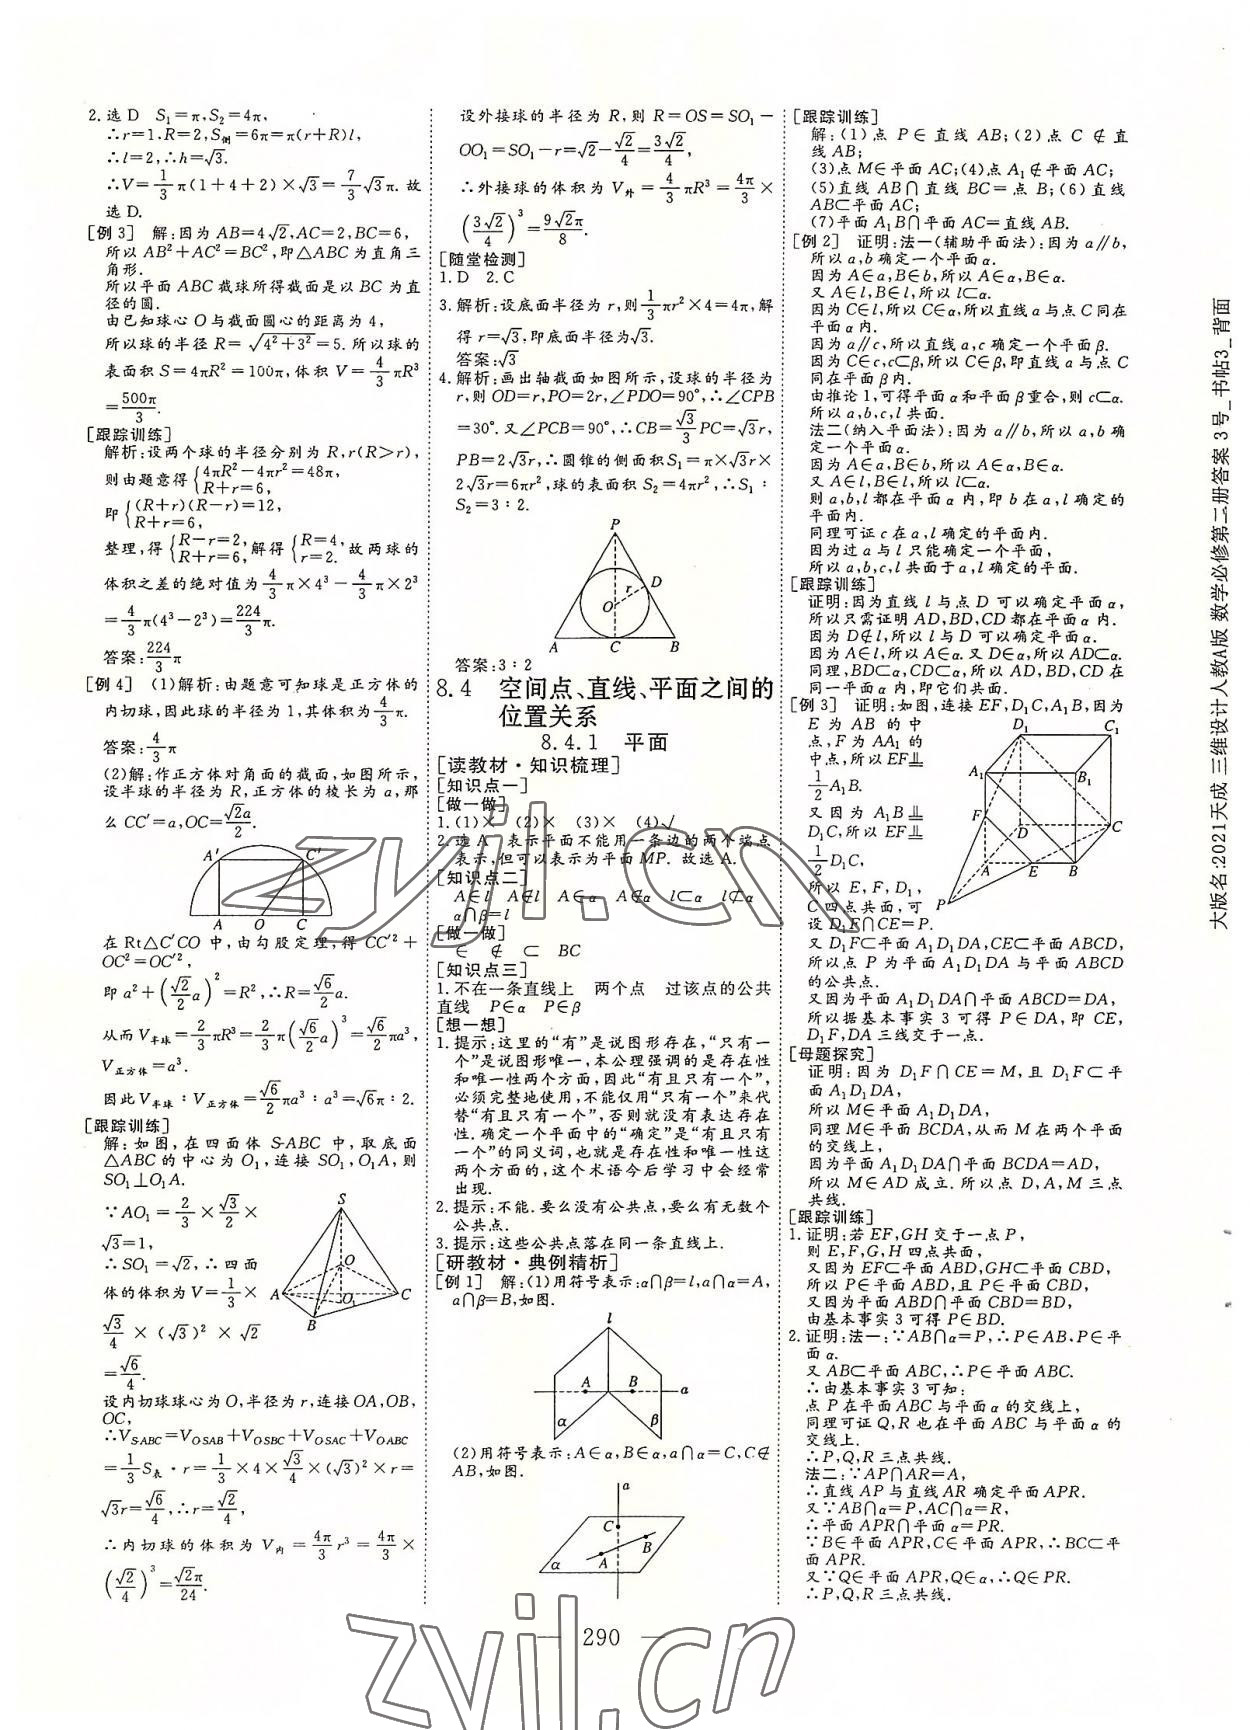 2.选 D S₁=π,S₂=4π,
∴r=1,R=2,S侧=6π=π(r+R)l,
∴l=2,∴h=√3.
∴V=1/3π(1+4+2)×√3=7/3√3π. 故
选 D.
[例 3] 解:因为 AB=4√2,AC=2,BC=6,
所以 AB²+AC²=BC²,即△ABC 为直角三
角形.
所以平面 ABC 截球所得截面是以 BC 为直
径的圆.
由已知球心 O 与截面圆心的距离为 4,
所以球的半径 R=√(4²+3²)=5. 所以球的
表面积 S=4πR²=100π,体积 V=4/3πR³
=500π/3.
[跟踪训练]
解析:设两个球的半径分别为 R,r(R>r),
则由题意得{4πR²-4πr²=48π, R+r=6,
即{(R+r)(R-r)=12, R+r=6,
整理,得{R-r=2, R+r=6,解得{R=4, r=2.故两球的
体积之差的绝对值为4/3π×4³-4/3π×2³
=4/3π(4³-2³)=224/3π.
答案:224/3π
[例 4] (1)解析:由题意可知球是正方体的
内切球,因此球的半径为 1,其体积为4/3π.
答案:4/3π
(2)解:作正方体对角面的截面,如图所示,
设半球的半径为 R,正方体的棱长为 a,那
么 CC′=a,OC=√2a/2.
A′ C′
A O C
在 Rt△C′CO 中,由勾股定理,得 CC′²+
OC²=OC′²,
即 a²+(√2/2a)²=R²,∴R=√6/2a.
从而 V半球=2/3πR³=2/3π(√6/2a)³=√6/2πa³,
V正方体=a³.
因此 V半球∶V正方体=√6/2πa³∶a³=√6π∶2.
[跟踪训练]
解:如图,在四面体 S-ABC 中,取底面
△ABC 的中心为 O₁,连接 SO₁,O₁A,则
SO₁⊥O₁A.
∵AO₁=2/3×√3/2×
√3=1,
∴SO₁=√2,∴四面
体的体积为 V=1/3×
√3/4×(√3)²×√2
=√6/4.
S
O
A O₁ C
B
设内切球球心为 O,半径为 r,连接 OA,OB,
OC,
∴V_SABC=V_OSAB+V_OSBC+V_OSAC+V_OABC
=1/3S表·r=1/3×4×√3/4×(√3)²×r=
√3r=√6/4,∴r=√2/4,
∴内切球的体积为 V内=4π/3r³=4π/3×
(√2/4)³=√2π/24.
设外接球的半径为 R,则 R=OS=SO₁-
OO₁=SO₁-r=√2-√2/4=3√2/4,
∴外接球的体积为 V外=4/3πR³=4π/3×
(3√2/4)³=9√2π/8.
[随堂检测]
1.D 2.C
3.解析:设底面半径为 r,则1/3πr²×4=4π,解
得 r=√3,即底面半径为√3.
答案:√3
4.解析:画出轴截面如图所示,设球的半径为
r,则 OD=r,PO=2r,∠PDO=90°,∴∠CPB
=30°.又∠PCB=90°,∴CB=√3/3PC=√3r,
PB=2√3r,∴圆锥的侧面积S₁=π×√3r×
2√3r=6πr²,球的表面积 S₂=4πr²,∴S₁∶
S₂=3∶2.
P
D
r
O
A C B
答案:3∶2
8.4 空间点、直线、平面之间的
位置关系
8.4.1 平面
[读教材·知识梳理]
[知识点一]
[做一做]
1.(1)× (2)× (3)× (4)√
2.选 A 表示平面不能用一条边的两个端点
表示,但可以表示为平面 MP. 故选 A.
[知识点二]
A∈l A∉l A∈α A∉α l⊂α l⊄α
α∩β=l
[做一做]
∈ ∉ ⊂ BC
[知识点三]
1.不在一条直线上 两个点 过该点的公共
直线 P∈α P∈β
[想一想]
1.提示:这里的“有”是说图形存在,“只有一
个”是说图形唯一,本公理强调的是存在性
和唯一性两个方面,因此“有且只有一个”,
必须完整地使用,不能仅用“只有一个”来代
替“有且只有一个”,否则就没有表达存在
性.确定一个平面中的“确定”是“有且只有
一个”的同义词,也就是存在性和唯一性这
两个方面的,这个术语今后学习中会经常
出现.
2.提示:不能.要么没有公共点,要么有无数个
公共点.
3.提示:这些公共点落在同一条直线上.
[研教材·典例精析]
[例 1] 解:(1)用符号表示:α∩β=l,a∩α=A,
a∩β=B,如图.
l
A B a
α β
(2)用符号表示:A∈α,B∈α,a∩α=C,C∉
AB,如图.
a
C
A B
α
[跟踪训练]
解:(1)点 P∈直线 AB;(2)点 C∉直
线 AB;
(3)点 M∈平面 AC;(4)点 A₁∉平面 AC;
(5)直线 AB∩直线 BC=点 B;(6)直线
AB⊂平面 AC;
(7)平面 A₁B∩平面 AC=直线 AB.
[例 2] 证明:法一(辅助平面法):因为 a∥b,
所以 a,b 确定一个平面α.
因为 A∈a,B∈b,所以 A∈α,B∈α.
又 A∈l,B∈l,所以 l⊂α.
因为 C∈l,所以 C∈α,所以直线 a 与点 C 同在
平面 α 内.
因为 a∥c,所以直线 a,c 确定一个平面 β.
因为 C∈c,c⊂β,所以 C∈β,即直线 a 与点 C
同在平面 β 内.
由推论 1,可得平面 α 和平面 β 重合,则 c⊂α.
所以 a,b,c,l 共面.
法二(纳入平面法):因为 a∥b,所以 a,b 确
定一个平面α.
因为 A∈a,B∈b,所以 A∈α,B∈α.
又 A∈l,B∈l,所以 l⊂α.
则 a,b,l 都在平面 α 内,即 b 在 a,l 确定的
平面内.
同理可证 c 在 a,l 确定的平面内.
因为过 a 与 l 只能确定一个平面,
所以 a,b,c,l 共面于 a,l 确定的平面.
[跟踪训练]
证明:因为直线 l 与点 D 可以确定平面 α,
所以只需证明 AD,BD,CD 都在平面 α 内.
因为 D∉l,所以 l 与 D 可以确定平面 α.
因为 A∈l,所以 A∈α.又 D∈α,所以 AD⊂α.
同理,BD⊂α,CD⊂α,所以 AD,BD,CD 在
同一平面α内,即它们共面.
[例 3] 证明:如图,连接 EF,D₁C,A₁B,因为
E 为 AB 的中
点,F 为 AA₁ 的
中点,所以 EF∥=
1/2A₁B.
又因为 A₁B∥=
D₁C,所以 EF∥=
1/2D₁C,
所以 E,F,D₁,
C 四点共面,可
设 D₁F∩CE=P.
D₁ C₁
A₁ B₁
F D C
A E B
P
又 D₁F⊂平面 A₁D₁DA,CE⊂平面 ABCD,
所以点 P 为平面 A₁D₁DA 与平面 ABCD
的公共点.
又因为平面 A₁D₁DA∩平面 ABCD=DA,
所以据基本事实 3 可得 P∈DA,即 CE,
D₁F,DA 三线交于一点.
[母题探究]
证明:因为 D₁F∩CE=M,且 D₁F⊂平
面 A₁D₁DA,
所以 M∈平面 A₁D₁DA,
同理 M∈平面 BCDA,从而 M 在两个平面
的交线上,
因为平面 A₁D₁DA∩平面 BCDA=AD,
所以 M∈AD 成立.所以点 D,A,M 三点
共线.
[跟踪训练]
1.证明:若 EF,GH 交于一点 P,
则 E,F,G,H 四点共面,
又因为 EF⊂平面 ABD,GH⊂平面 CBD,
所以 P∈平面 ABD,且 P∈平面 CBD,
又因为平面 ABD∩平面 CBD=BD,
由基本事实 3 可得 P∈BD.
2.证明:法一:∵AB∩α=P,∴P∈AB,P∈平
面 α.
又 AB⊂平面 ABC,∴P∈平面 ABC.
∴由基本事实 3 可知:
点 P 在平面 ABC 与平面 α 的交线上,
同理可证 Q,R 也在平面 ABC 与平面 α 的
交线上.
∴P,Q,R 三点共线.
法二:∵AP∩AR=A,
∴直线 AP 与直线 AR 确定平面 APR.
又∵AB∩α=P,AC∩α=R,
∴平面 APR∩平面 α=PR.
∵B∈平面 APR,C∈平面 APR,∴BC⊂平
面 APR.
又∵Q∈平面 APR,Q∈α,∴Q∈PR.
∴P,Q,R 三点共线.
290
大版名:2021天成 三维设计 人教A版 数学必修第二册答案 3号_书帖3_背面
zyjl.cn
zyjl.cn